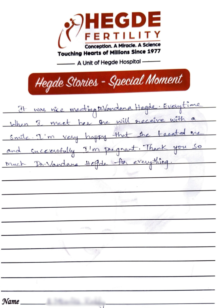 HEGDE
FERTILITY
Conception. A Miracle. A Science
Touching Hearts of Millions Since 1977
A Unit of Hegde Hospital
Hegde Stories - Special Moment
It was nice meeting Vandana Hegde. Everytime
when I meet her she will receive with a
smile. I'm very happy that she treated me
and successfully I'm pregnant. Thank you so
much Dr Vandana Hegde for everything.
Name